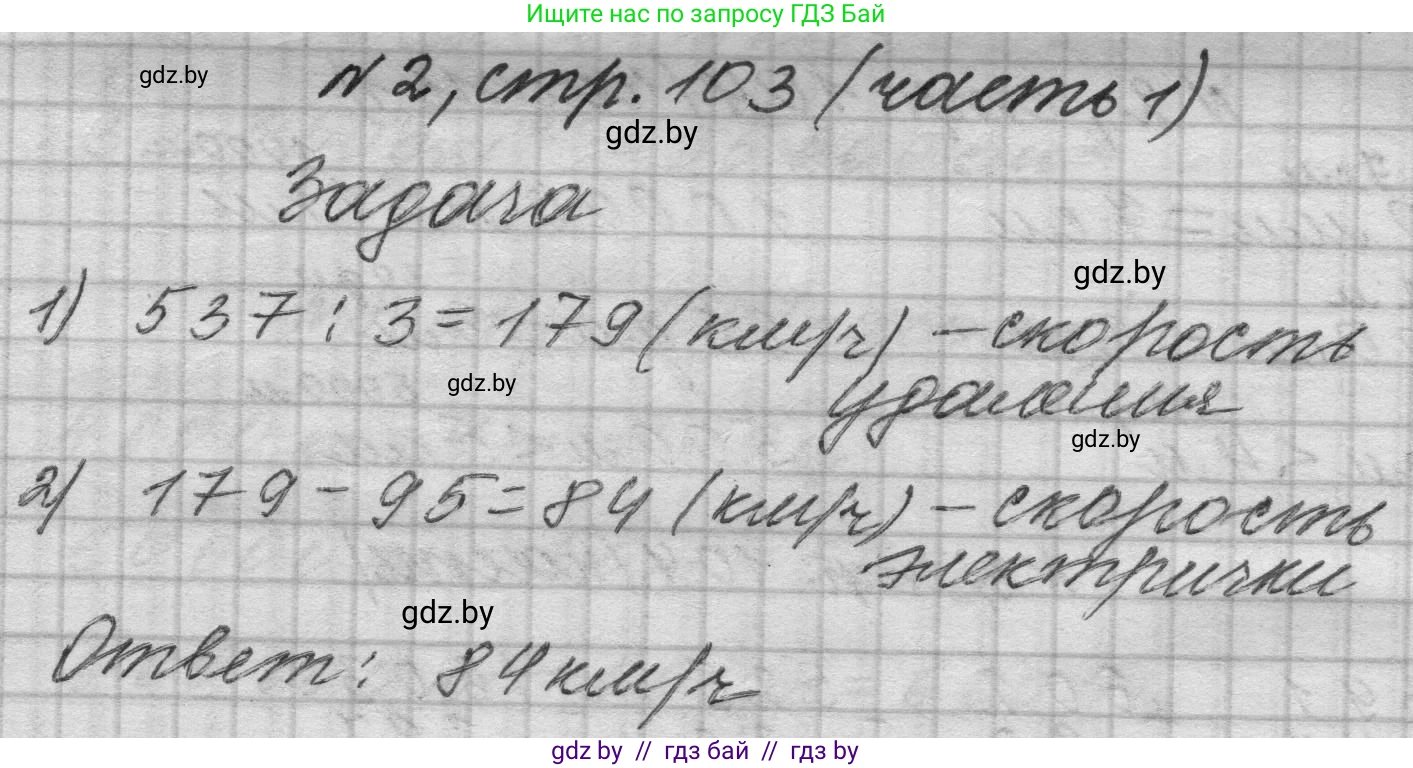 Ищите нас по запросу ГДЗ Бай
gdz.by
№2, стр. 103 (часть 1)
gdz.by
Задача
gdz.by
1) 537 : 3 = 179 (км/ч) – скорость
удаления
gdz.by
gdz.by
2) 179 - 95 = 84 (км/ч) – скорость
электрички
gdz.by
Ответ: 84 км/ч
gdz by // гдз бай // гдз by